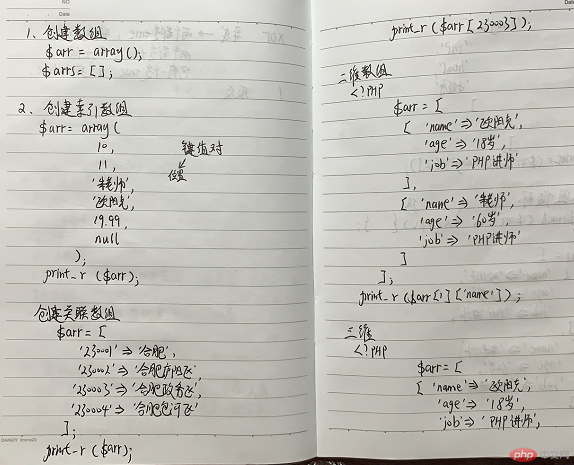 1、创建数组
$arr = array();
$arrs = [];
2、创建索引数组
$arr = array(
10,
11,
键值对
位置
'朱老师',
'欧阳克',
19.99,
null
);
print_r ($arr);
创建关联数组
$arr = [
'230001' => '合肥',
'230002' => '合肥庐阳区',
'230003' => '合肥政务区',
'230004' => '合肥包河区'
];
print_r ($arr);
print_r ($arr[230003]);
二维数组
<?PHP
$arr = [
[ 'name' => '欧阳克',
'age' => '18岁',
'job' => 'PHP讲师'
],
[ 'name' => '朱老师',
'age' => '60岁',
'job' => 'PHP讲师'
]
];
print_r ($arr[1]['name']);
三维
<?PHP
$arr = [
[ 'name' => '欧阳克',
'age' => '18岁',
'job' => 'PHP讲师',
php